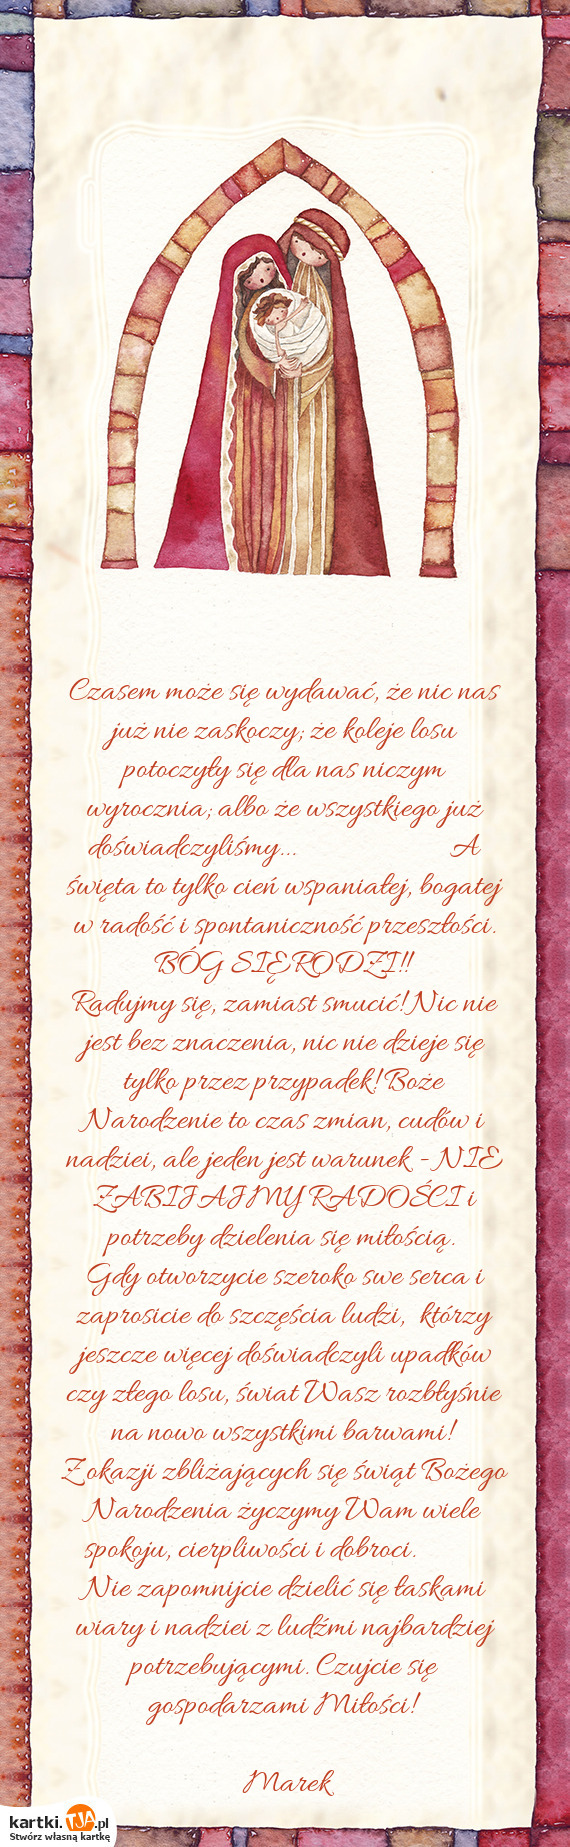 Czasem może się wydawać, że nic nas
już nie zaskoczy; że koleje losu
potoczyły się dla nas niczym
wyrocznia; albo że wszystkiego już
doświadczyliśmy... A
święta to tylko cień wspaniałej, bogatej
w radość i spontaniczność przeszłości.
BÓG SIĘ RODZI!!
Radujmy się, zamiast smucić! Nic nie
jest bez znaczenia, nic nie dzieje się
tylko przez przypadek! Boże
Narodzenie to czas zmian, cudów i
nadziei, ale jeden jest warunek - NIE
ZABIJAJMY RADOŚCI i
potrzeby dzielenia się miłością.
Gdy otworzycie szeroko swe serca i
zaprosicie do szczęścia ludzi, którzy
jeszcze więcej doświadczyli upadków
czy złego losu, świat Wasz rozbłyśnie
na nowo wszystkimi barwami!
Z okazji zbliżających się świąt Bożego
Narodzenia życzymy Wam wiele
spokoju, cierpliwości i dobroci.
Nie zapomnijcie dzielić się łaskami
wiary i nadziei z ludźmi najbardziej
potrzebującymi. Czujcie się
gospodarzami Miłości!
Marek
kartki.TJA.pl
Stwórz własną kartkę